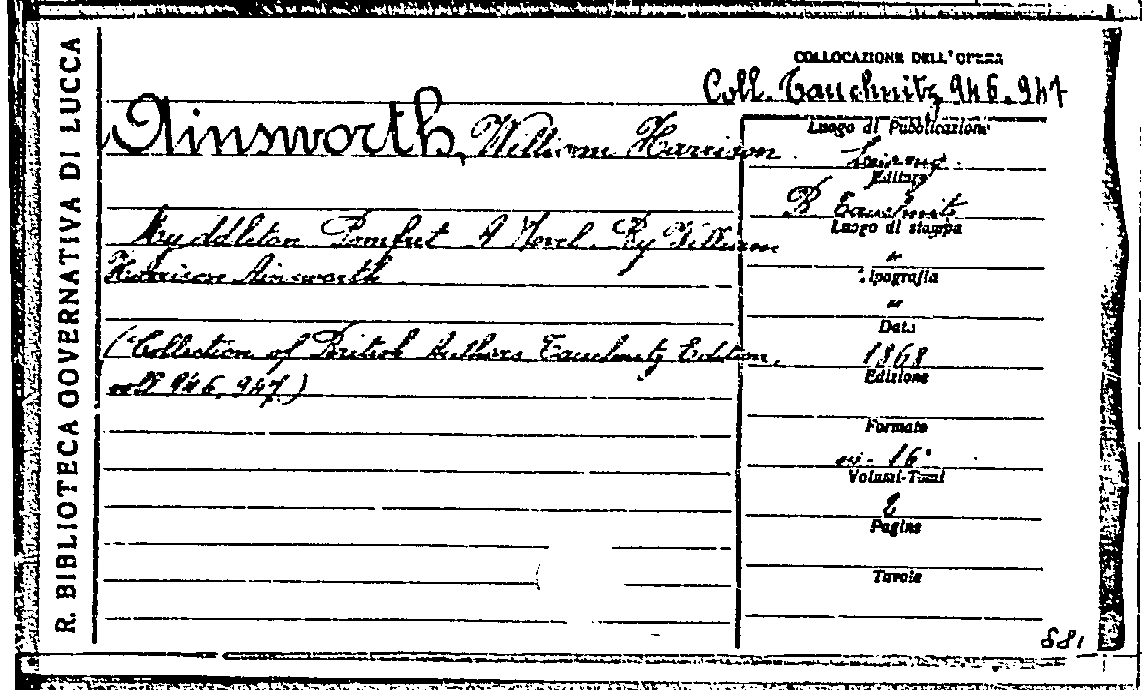 R. BIBLIOTECA GOVERNATIVA DI LUCCA
COLLOCAZIONE DELL'OPERA
Coll. Tauchnitz 946.947
Ainsworth, William Harrison.
Myddleton Pomfret A Novel. By William
Harrison Ainsworth.
(Collection of British Authors Tauchnitz Edition,
voll 946, 947.)
Luogo di Pubblicazione
Editore
B Tauchnitz
Luogo di stampa
Tipografia
Data
1868
Edizione
Formato
in-16°
Volumi-Tomi
2
Pagine
Tavole
881